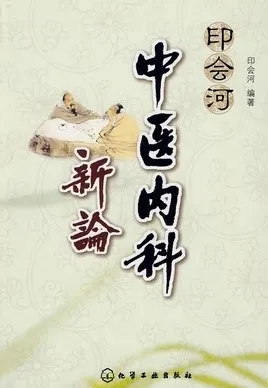 印会河
印会河 编著
中医内科
新論
化学工业出版社